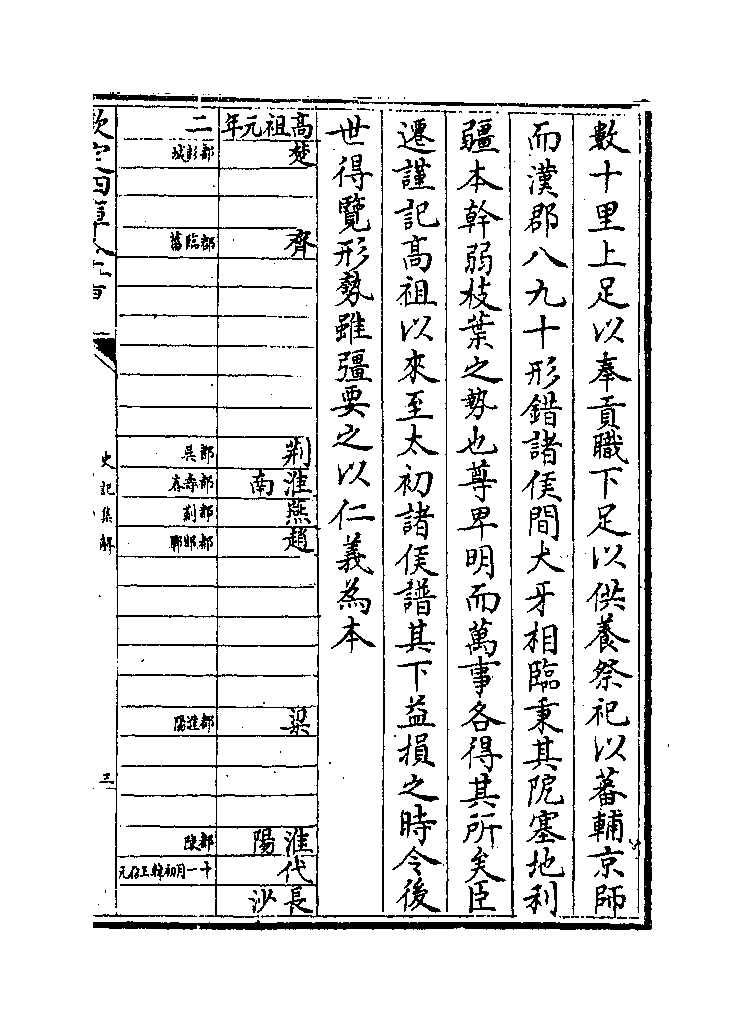 數十里上足以奉貢職下足以供養祭祀以蕃輔京師
而漢郡八九十形錯諸侯間犬牙相臨秉其阨塞地利
彊本幹弱枝葉之勢也尊卑明而萬事各得其所矣臣
遷謹記高祖以來至太初諸侯譜其下益損之時令後
世得覽形勢雖彊要之以仁義為本
高祖元年
楚
齊
荆
淮南
燕
趙
梁
淮陽
代
長沙
二
都彭城
都臨菑
都吳
都壽春
都薊
都邯鄲
都淮陽
都陳
十一月初韓王信元
欽定四庫全書
史記集解
三